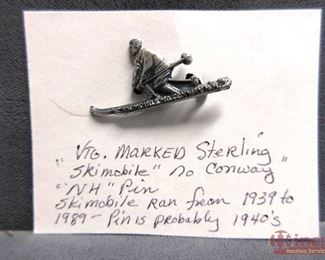 VTG. MARKED Sterling
"Skimobile" No Conway"
"NH" Pin
Skimobile Ran from 1939 to
1989 - Pin is probably 1940's
Auction Service